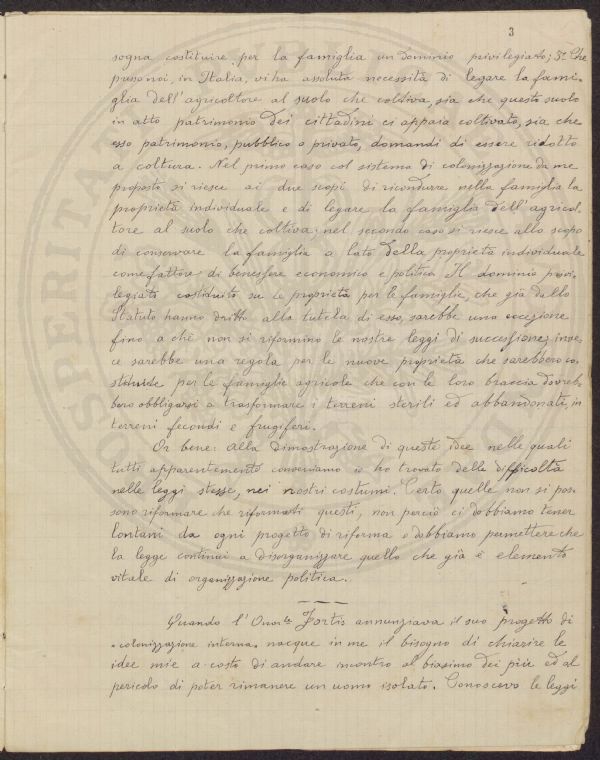 3
sogna costituire per la famiglia un dominio privilegiato; 5° Che
presso noi, in Italia, vi ha assoluta necessità di legare la fami-
glia dell'agricoltore al suolo che coltiva, sia che questo suolo
in atto patrimonio dei cittadini ci appaia coltivato, sia che
esso patrimonio, pubblico o privato, domandi di essere ridotto
a coltura. Nel primo caso col sistema di colonizzazione da me
proposto si riesce ai due scopi di ricondurre nella famiglia la
proprietà individuale e di legare la famiglia dell'agricol-
tore al suolo che coltiva; nel secondo caso si riesce allo scopo
di conservare la famiglia a lato della proprietà individuale
come fattore di benessere economico e politico. Il dominio privi-
legiato costituito su le proprietà per le famiglie, che già dallo
Statuto hanno dritto alla tutela di esso, sarebbe una eccezione
fino a che non si riformino le nostre leggi di successione; inve-
ce sarebbe una regola per le nuove proprietà che sarebbero co-
stituide per le famiglie agricole che con le loro braccia dovreb-
bero obbligarsi a trasformare i terreni sterili ed abbandonati, in
terreni fecondi e frugiferi.
Or bene: alla dimostrazione di queste idee nelle quali
tutti apparentemente conveniamo io ho trovato delle difficoltà
nelle leggi stesse, nei nostri costumi. Certo quelle non si pos-
sono riformare che riformati questi, non perciò ci dobbiamo tener
lontani da ogni progetto di riforma o dobbiamo permettere che
la legge continui a disorganizzare quello che già è elemento
vitale di organizzazione politica.
Quando l'Onor.le Fortis annunziava il suo progetto di
"colonizzazione interna" nacque in me il bisogno di chiarire le
idee mie a costo di andare incontro al biasimo dei più ed al
pericolo di poter rimanere un uomo isolato. Conoscevo le leggi
PROSPERITÀ